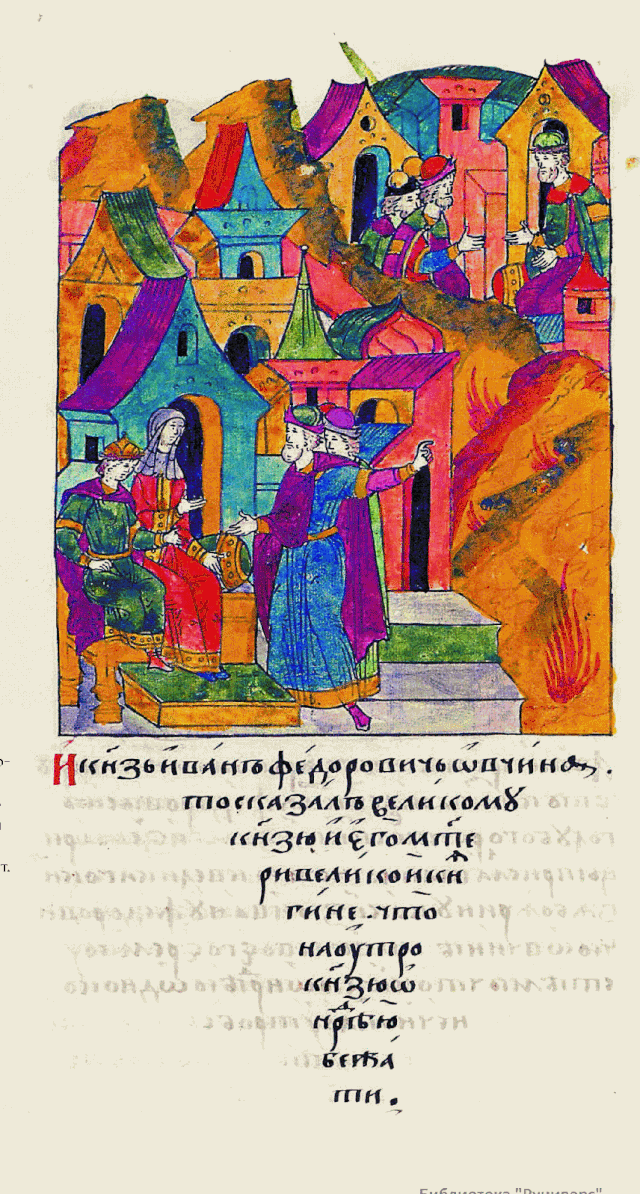 И кн҃зь ива́нъ фе́дорович ѡвчи́на,
то сказа́лъ вели́кому
кн҃зю и є҆го мт҃е
ри вели́кои кн҃
ги́не. что
наоутро
кн҃зю ѡ
нд҃рѣю
бежа́
ти.
Библиотека "Руниверс"